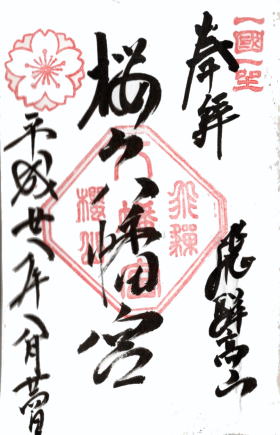 一國一社
奉拝
飛騨高山
桜山八幡宮
飛驒
八幡宮
櫻山
平成廿八年八月廿四日